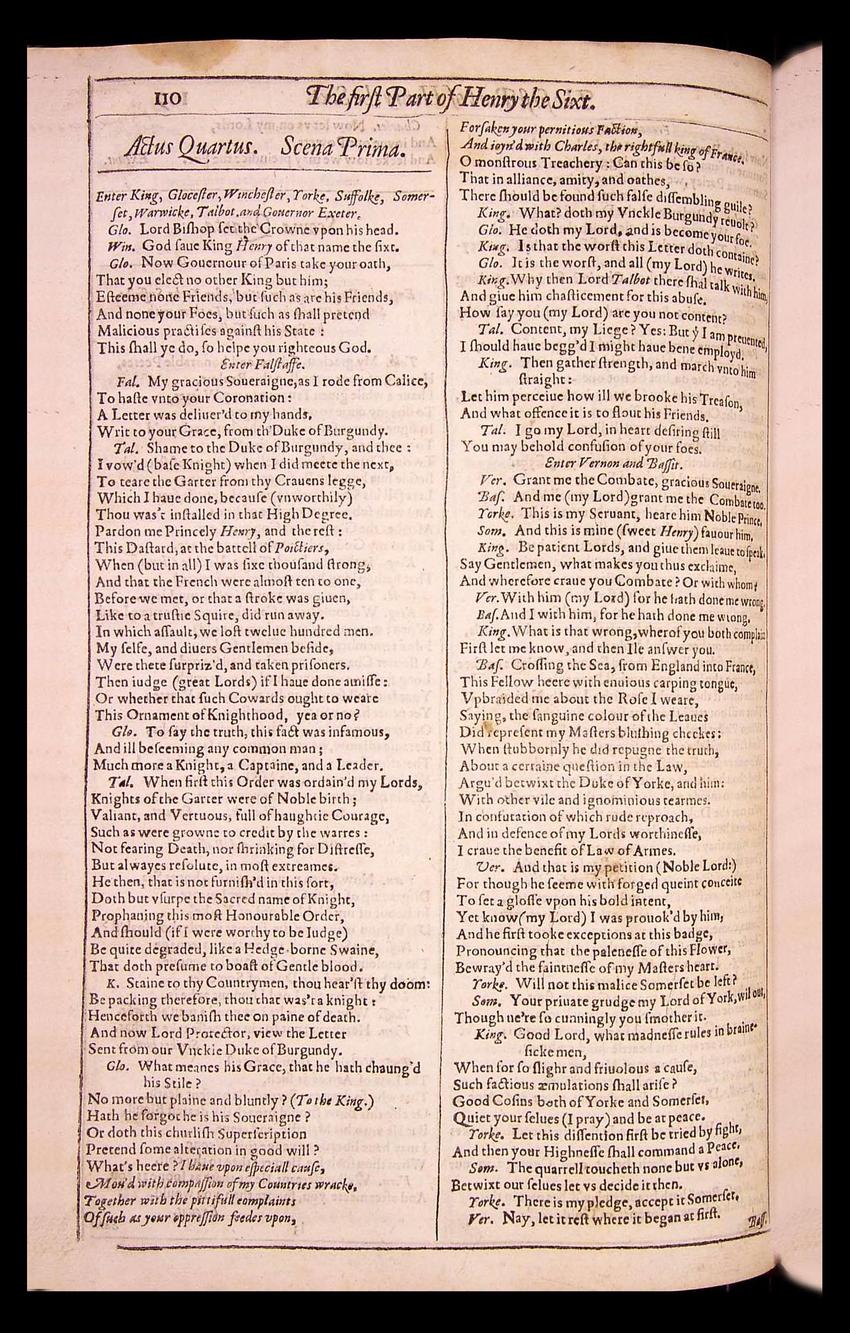 110
The first Part of Henry the Sixt.
Actus Quartus. Scena Prima.
Enter King, Glocester, Winchester, Yorke, Suffolke, Somer-
set, Warwicke, Talbot, and Gouernor Exeter.
Glo. Lord Bishop set the Crowne vpon his head.
Win. God saue King Henry of that name the sixt.
Glo. Now Gouernour of Paris take your oath,
That you elect no other King but him;
Esteeme none Friends, but such as are his Friends,
And none your Foes, but such as shall pretend
Malicious practises against his State :
This shall ye do, so helpe you righteous God.
Enter Falstaffe.
Fal. My gracious Soueraigne, as I rode from Calice,
To haste vnto your Coronation :
A Letter was deliuer'd to my hands,
Writ to your Grace, from th'Duke of Burgundy.
Tal. Shame to the Duke of Burgundy, and thee :
I vow'd (base Knight) when I did meete the next,
To teare the Garter from thy Crauens legge,
Which I haue done, because (vnworthily)
Thou was't installed in that High Degree.
Pardon me Princely Henry, and the rest :
This Dastard, at the battell of Poictiers,
When (but in all) I was sixe thousand strong,
And that the French were almost ten to one,
Before we met, or that a stroke was giuen,
Like to a trustie Squire, did run away.
In which assault, we lost twelue hundred men.
My selfe, and diuers Gentlemen beside,
Were there surpriz'd, and taken prisoners.
Then iudge (great Lords) if I haue done amisse :
Or whether that such Cowards ought to weare
This Ornament of Knighthood, yea or no?
Glo. To say the truth, this fact was infamous,
And ill beseeming any common man ;
Much more a Knight, a Captaine, and a Leader.
Tal. When first this Order was ordain'd my Lords,
Knights of the Garter were of Noble birth ;
Valiant, and Vertuous, full of haughtie Courage,
Such as were growne to credit by the warres :
Not fearing Death, nor shrinking for Distresse,
But alwayes resolute, in most extreames.
He then, that is not furnish'd in this sort,
Doth but vsurpe the Sacred name of Knight,
Prophaning this most Honourable Order,
And should (if I were worthy to be Iudge)
Be quite degraded, like a Hedge-borne Swaine,
That doth presume to boast of Gentle blood.
K. Staine to thy Countrymen, thou hear'st thy doom:
Be packing therefore, thou that was't a knight :
Henceforth we banish thee on paine of death.
And now Lord Protector, view the Letter
Sent from our Vnckle Duke of Burgundy.
Glo. What meanes his Grace, that he hath chaung'd
his Stile ?
No more but plaine and bluntly ? (To the King.)
Hath he forgot he is his Soueraigne ?
Or doth this churlish Superscription
Pretend some alteration in good will ?
What's heere ? I haue vpon especiall cause,
Mou'd with compassion of my Countries wracke,
Together with the pittifull complaints
Of such as your oppression feedes vpon,
Forsaken your pernitious Faction,
And ioyn'd with Charles, the rightfull king of France.
O monstrous Treachery : Can this be so ?
That in alliance, amity, and oathes,
There should be found such false dissembling guile?
King. What? doth my Vnckle Burgundy reuolt?
Glo. He doth my Lord, and is become your foe.
King. Is that the worst this Letter doth containe?
Glo. It is the worst, and all (my Lord) he writes.
King. Why then Lord Talbot there shal talk with him,
And giue him chasticement for this abuse.
How say you (my Lord) are you not content?
Tal. Content, my Liege? Yes: But ẏ I am preuented,
I should haue begg'd I might haue bene employd.
King. Then gather strength, and march vnto him
straight :
Let him perceiue how ill we brooke his Treason,
And what offence it is to flout his Friends.
Tal. I go my Lord, in heart desiring still
You may behold confusion of your foes.
Enter Vernon and Bassit.
Ver. Grant me the Combate, gracious Soueraigne.
Bas. And me (my Lord) grant me the Combate too.
Yorke. This is my Seruant, heare him Noble Prince,
Som. And this is mine (sweet Henry) fauour him,
King. Be patient Lords, and giue them leaue to speak.
Say Gentlemen, what makes you thus exclaime,
And wherefore craue you Combate ? Or with whom?
Ver. With him (my Lord) for he hath done me wrong.
Bas. And I with him, for he hath done me wrong,
King. What is that wrong, wherof you both complain
First let me know, and then Ile answer you.
Bas. Crossing the Sea, from England into France,
This Fellow heere with enuious carping tongue,
Vpbraided me about the Rose I weare,
Saying, the sanguine colour of the Leaues
Did represent my Masters blushing cheekes:
When stubbornly he did repugne the truth,
About a certaine question in the Law,
Argu'd betwixt the Duke of Yorke, and him:
With other vile and ignominious tearmes.
In confutation of which rude reproach,
And in defence of my Lords worthinesse,
I craue the benefit of Law of Armes.
Ver. And that is my petition (Noble Lord:)
For though he seeme with forged queint conceite
To set a glosse vpon his bold intent,
Yet know (my Lord) I was prouok'd by him,
And he first tooke exceptions at this badge,
Pronouncing that the palenesse of this Flower,
Bewray'd the faintnesse of my Masters heart.
Yorke. Will not this malice Somerset be left?
Som. Your priuate grudge my Lord of York, wil out,
Though ne're so cunningly you smother it.
King. Good Lord, what madnesse rules in braine-
sicke men,
When for so slight and friuolous a cause,
Such factious æmulations shall arise ?
Good Cosins both of Yorke and Somerset,
Quiet your selues (I pray) and be at peace.
Yorke. Let this dissention first be tried by fight,
And then your Highnesse shall command a Peace.
Som. The quarrell toucheth none but vs alone,
Betwixt our selues let vs decide it then.
Yorke. There is my pledge, accept it Somerset,
Ver. Nay, let it rest where it began at first.
Bass.